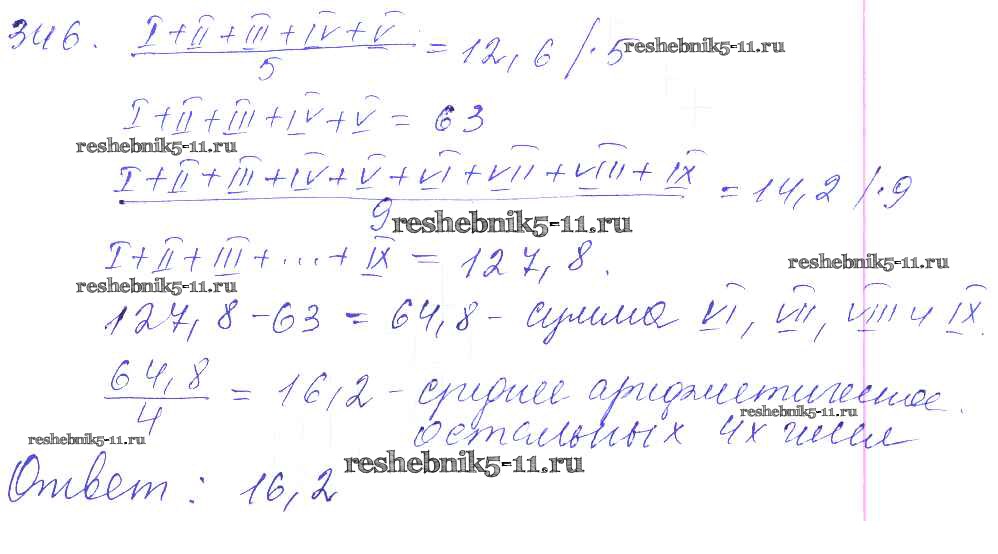 346. I+II+III+IV+V / 5 = 12,6 /·5 reshebnik5-11.ru
I+II+III+IV+V = 63
reshebnik5-11.ru
I+II+III+IV+V+VI+VII+VIII+IX / 9 = 14,2 /·9
reshebnik5-11.ru
I+II+III+...+IX = 127,8.
reshebnik5-11.ru
reshebnik5-11.ru
127,8-63 = 64,8 - сумма VI, VII, VIII и IX.
64,8 / 4 = 16,2 - среднее арифметическое
reshebnik5-11.ru
остальных 4х чисел
reshebnik5-11.ru
reshebnik5-11.ru
Ответ: 16,2